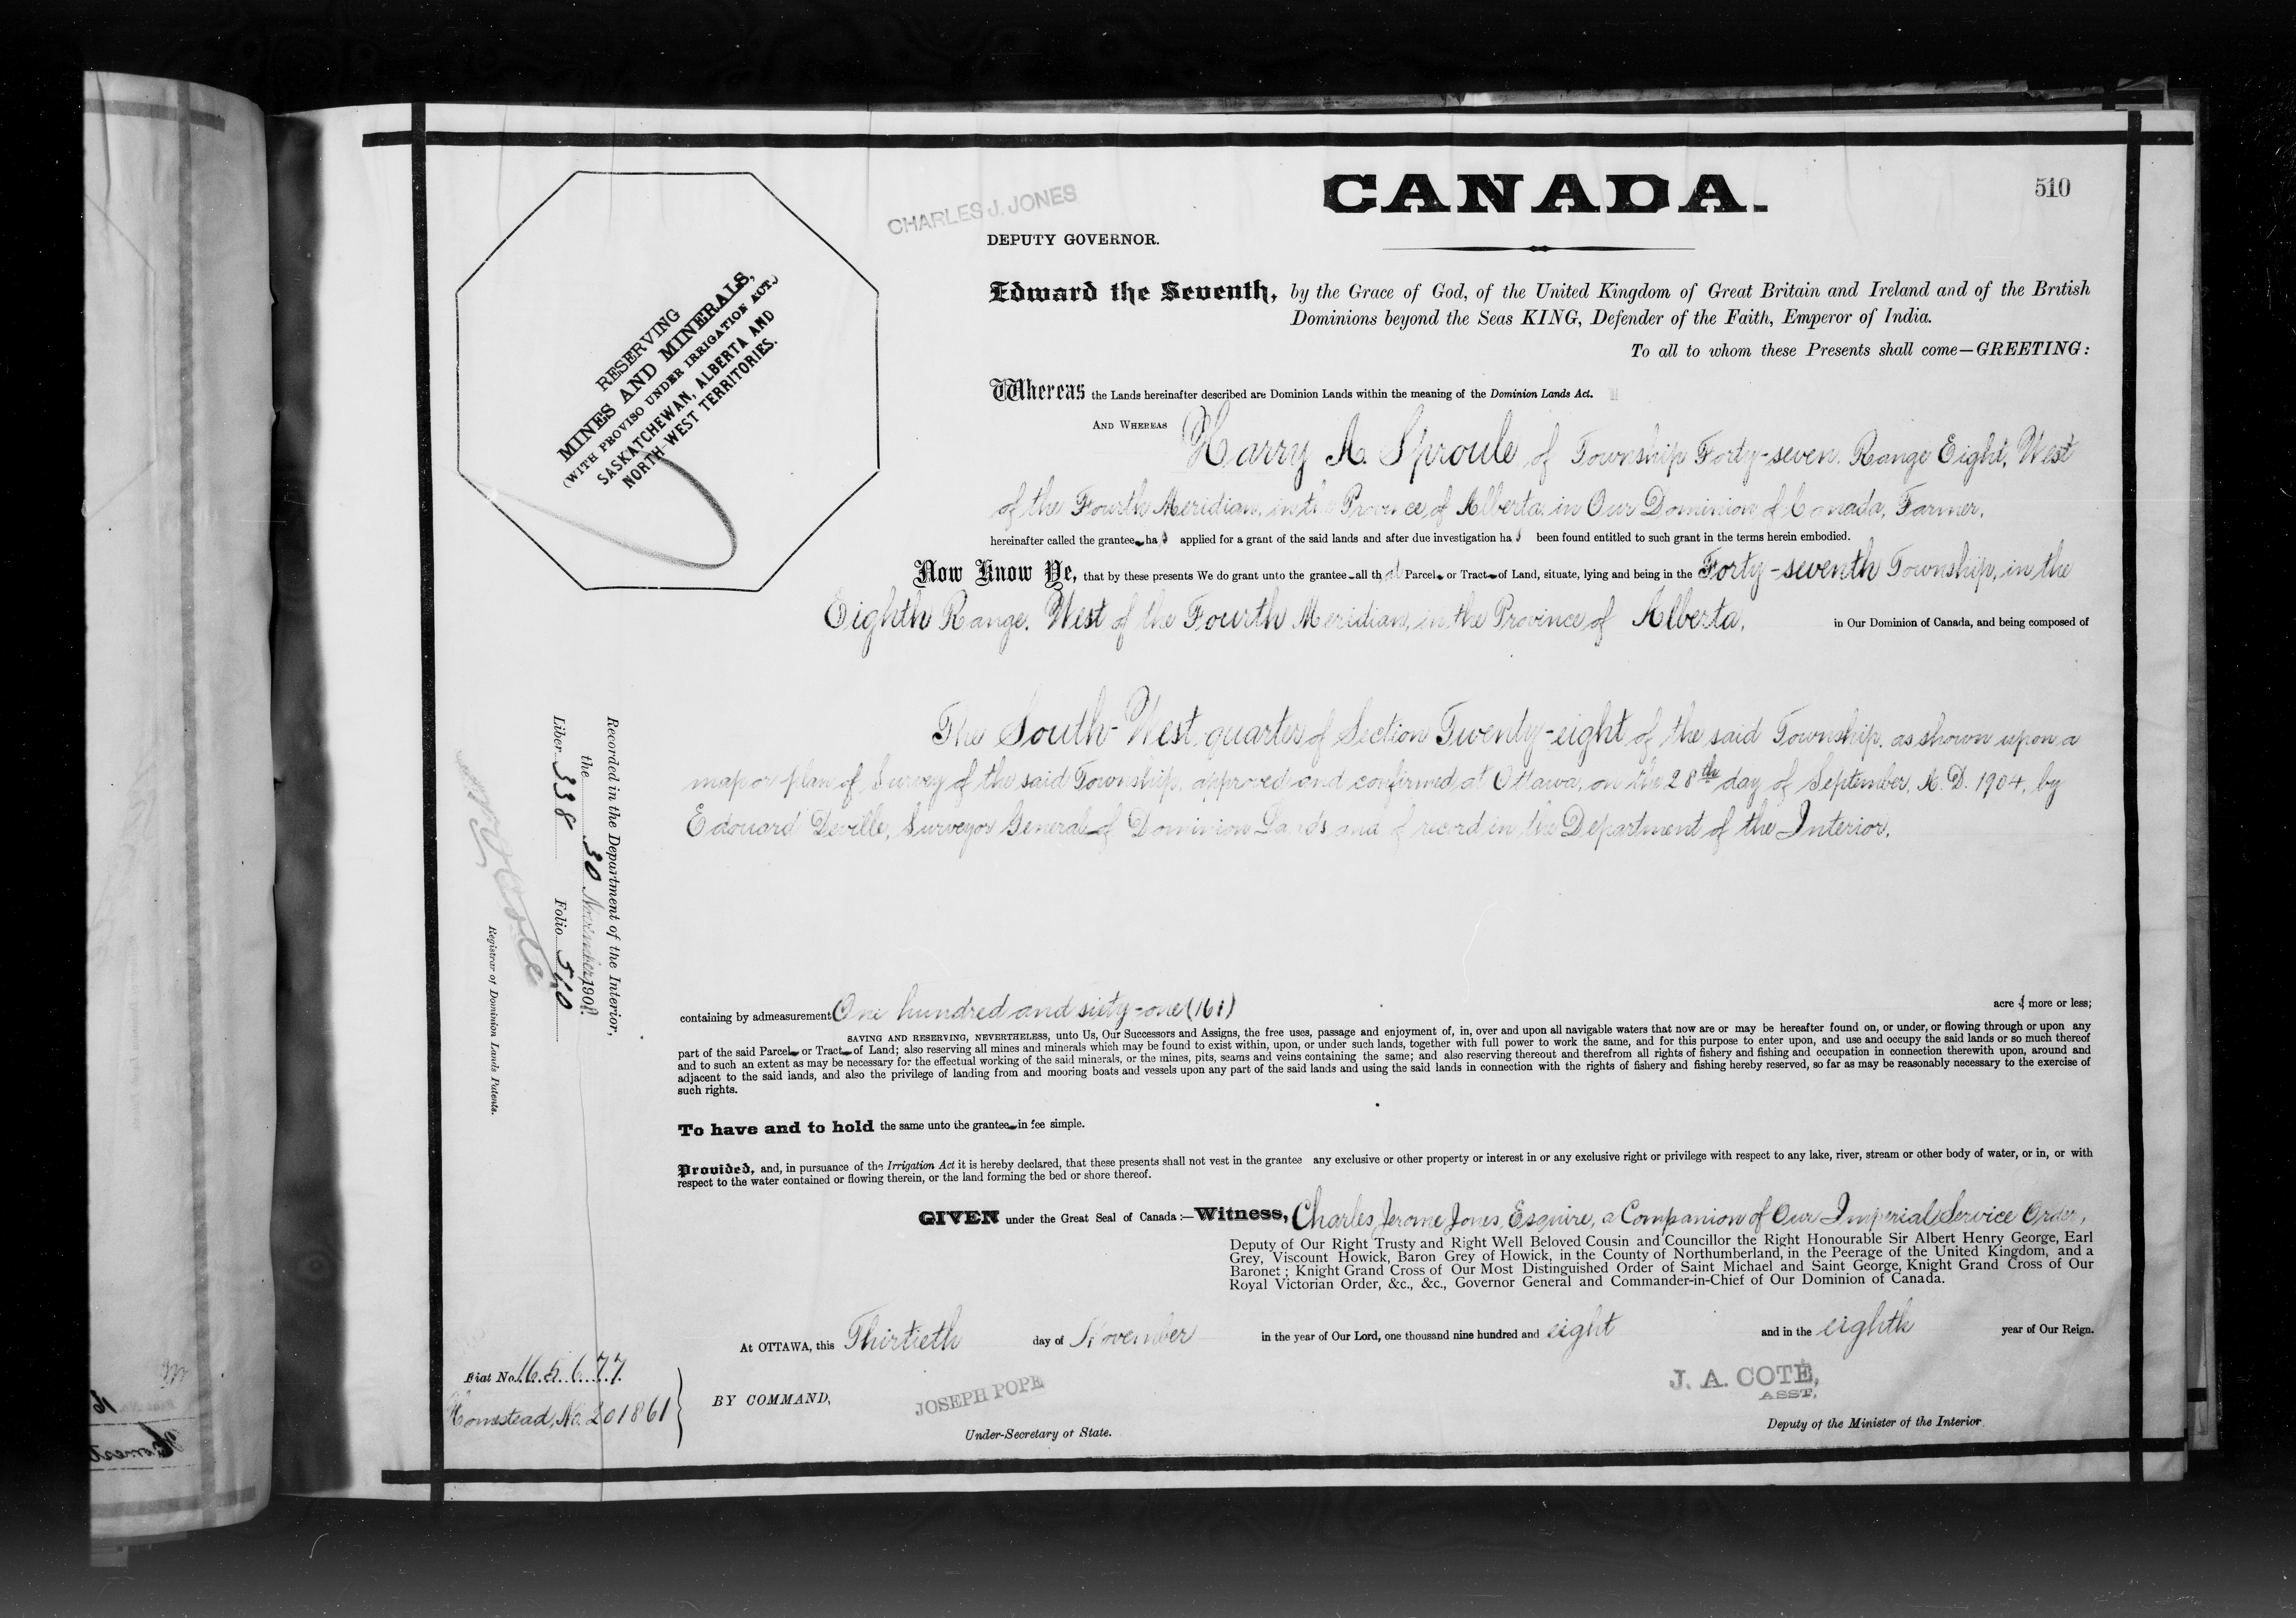 CANADA.
510
CHARLES J. JONES
DEPUTY GOVERNOR.
RESERVING
MINES AND MINERALS,
(WITH PROVISO UNDER IRRIGATION ACT,)
SASKATCHEWAN, ALBERTA AND
NORTH-WEST TERRITORIES.
Edward the Seventh, by the Grace of God, of the United Kingdom of Great Britain and Ireland and of the British
Dominions beyond the Seas KING, Defender of the Faith, Emperor of India.
To all to whom these Presents shall come—GREETING:
Whereas the Lands hereinafter described are Dominion Lands within the meaning of the Dominion Lands Act.
AND WHEREAS Harry A. Sproule of Township Forty-seven, Range Eight, West
of the Fourth Meridian, in the Province of Alberta, in Our Dominion of Canada, Farmer,
hereinafter called the grantee has applied for a grant of the said lands and after due investigation has been found entitled to such grant in the terms herein embodied.
Now Know Ye, that by these presents We do grant unto the grantee all that Parcel or Tract of Land, situate, lying and being in the Forty-seventh Township, in the
Eighth Range, West of the Fourth Meridian, in the Province of Alberta, in Our Dominion of Canada, and being composed of
The South-West quarter of Section Twenty-eight of the said Township, as shown upon a
map or plan of Survey of the said Township, approved and confirmed at Ottawa, on the 28th day of September, A.D. 1904, by
Edouard Deville, Surveyor General of Dominion Lands and of record in the Department of the Interior.
Recorded in the Department of the Interior,
the 30 November 1908
Liber 338 Folio 510
Registrar of Dominion Lands Patents.
containing by admeasurement One hundred and sixty-one (161) acres more or less;
SAVING AND RESERVING, NEVERTHELESS, unto Us, Our Successors and Assigns, the free uses, passage and enjoyment of, in, over and upon all navigable waters that now are or may be hereafter found on, or under, or flowing through or upon any
part of the said Parcel or Tract of Land; also reserving all mines and minerals which may be found to exist within, upon, or under such lands, together with full power to work the same, and for this purpose to enter upon, and use and occupy the said lands or so much thereof
and to such an extent as may be necessary for the effectual working of the said minerals, or the mines, pits, seams and veins containing the same; and also reserving thereout and therefrom all rights of fishery and fishing and occupation in connection therewith upon, around and
adjacent to the said lands, and also the privilege of landing from and mooring boats and vessels upon any part of the said lands and using the said lands in connection with the rights of fishery and fishing hereby reserved, so far as may be reasonably necessary to the exercise of
such rights.
To have and to hold the same unto the grantee in fee simple.
Provided, and, in pursuance of the Irrigation Act it is hereby declared, that these presents shall not vest in the grantee any exclusive or other property or interest in or any exclusive right or privilege with respect to any lake, river, stream or other body of water, or in, or with
respect to the water contained or flowing therein, or the land forming the bed or shore thereof.
GIVEN under the Great Seal of Canada:—Witness, Charles Jerome Jones, Esquire, a Companion of Our Imperial Service Order,
Deputy of Our Right Trusty and Right Well Beloved Cousin and Councillor the Right Honourable Sir Albert Henry George, Earl
Grey, Viscount Howick, Baron Grey of Howick, in the County of Northumberland, in the Peerage of the United Kingdom, and a
Baronet; Knight Grand Cross of Our Most Distinguished Order of Saint Michael and Saint George, Knight Grand Cross of Our
Royal Victorian Order, &c., &c., Governor General and Commander-in-Chief of Our Dominion of Canada.
At OTTAWA, this Thirtieth day of November in the year of Our Lord, one thousand nine hundred and eight and in the eighth year of Our Reign.
Fiat No. 165677
Homestead, No. 201861
BY COMMAND,
JOSEPH POPE
Under-Secretary of State.
J. A. COTÉ,
ASST.
Deputy of the Minister of the Interior.